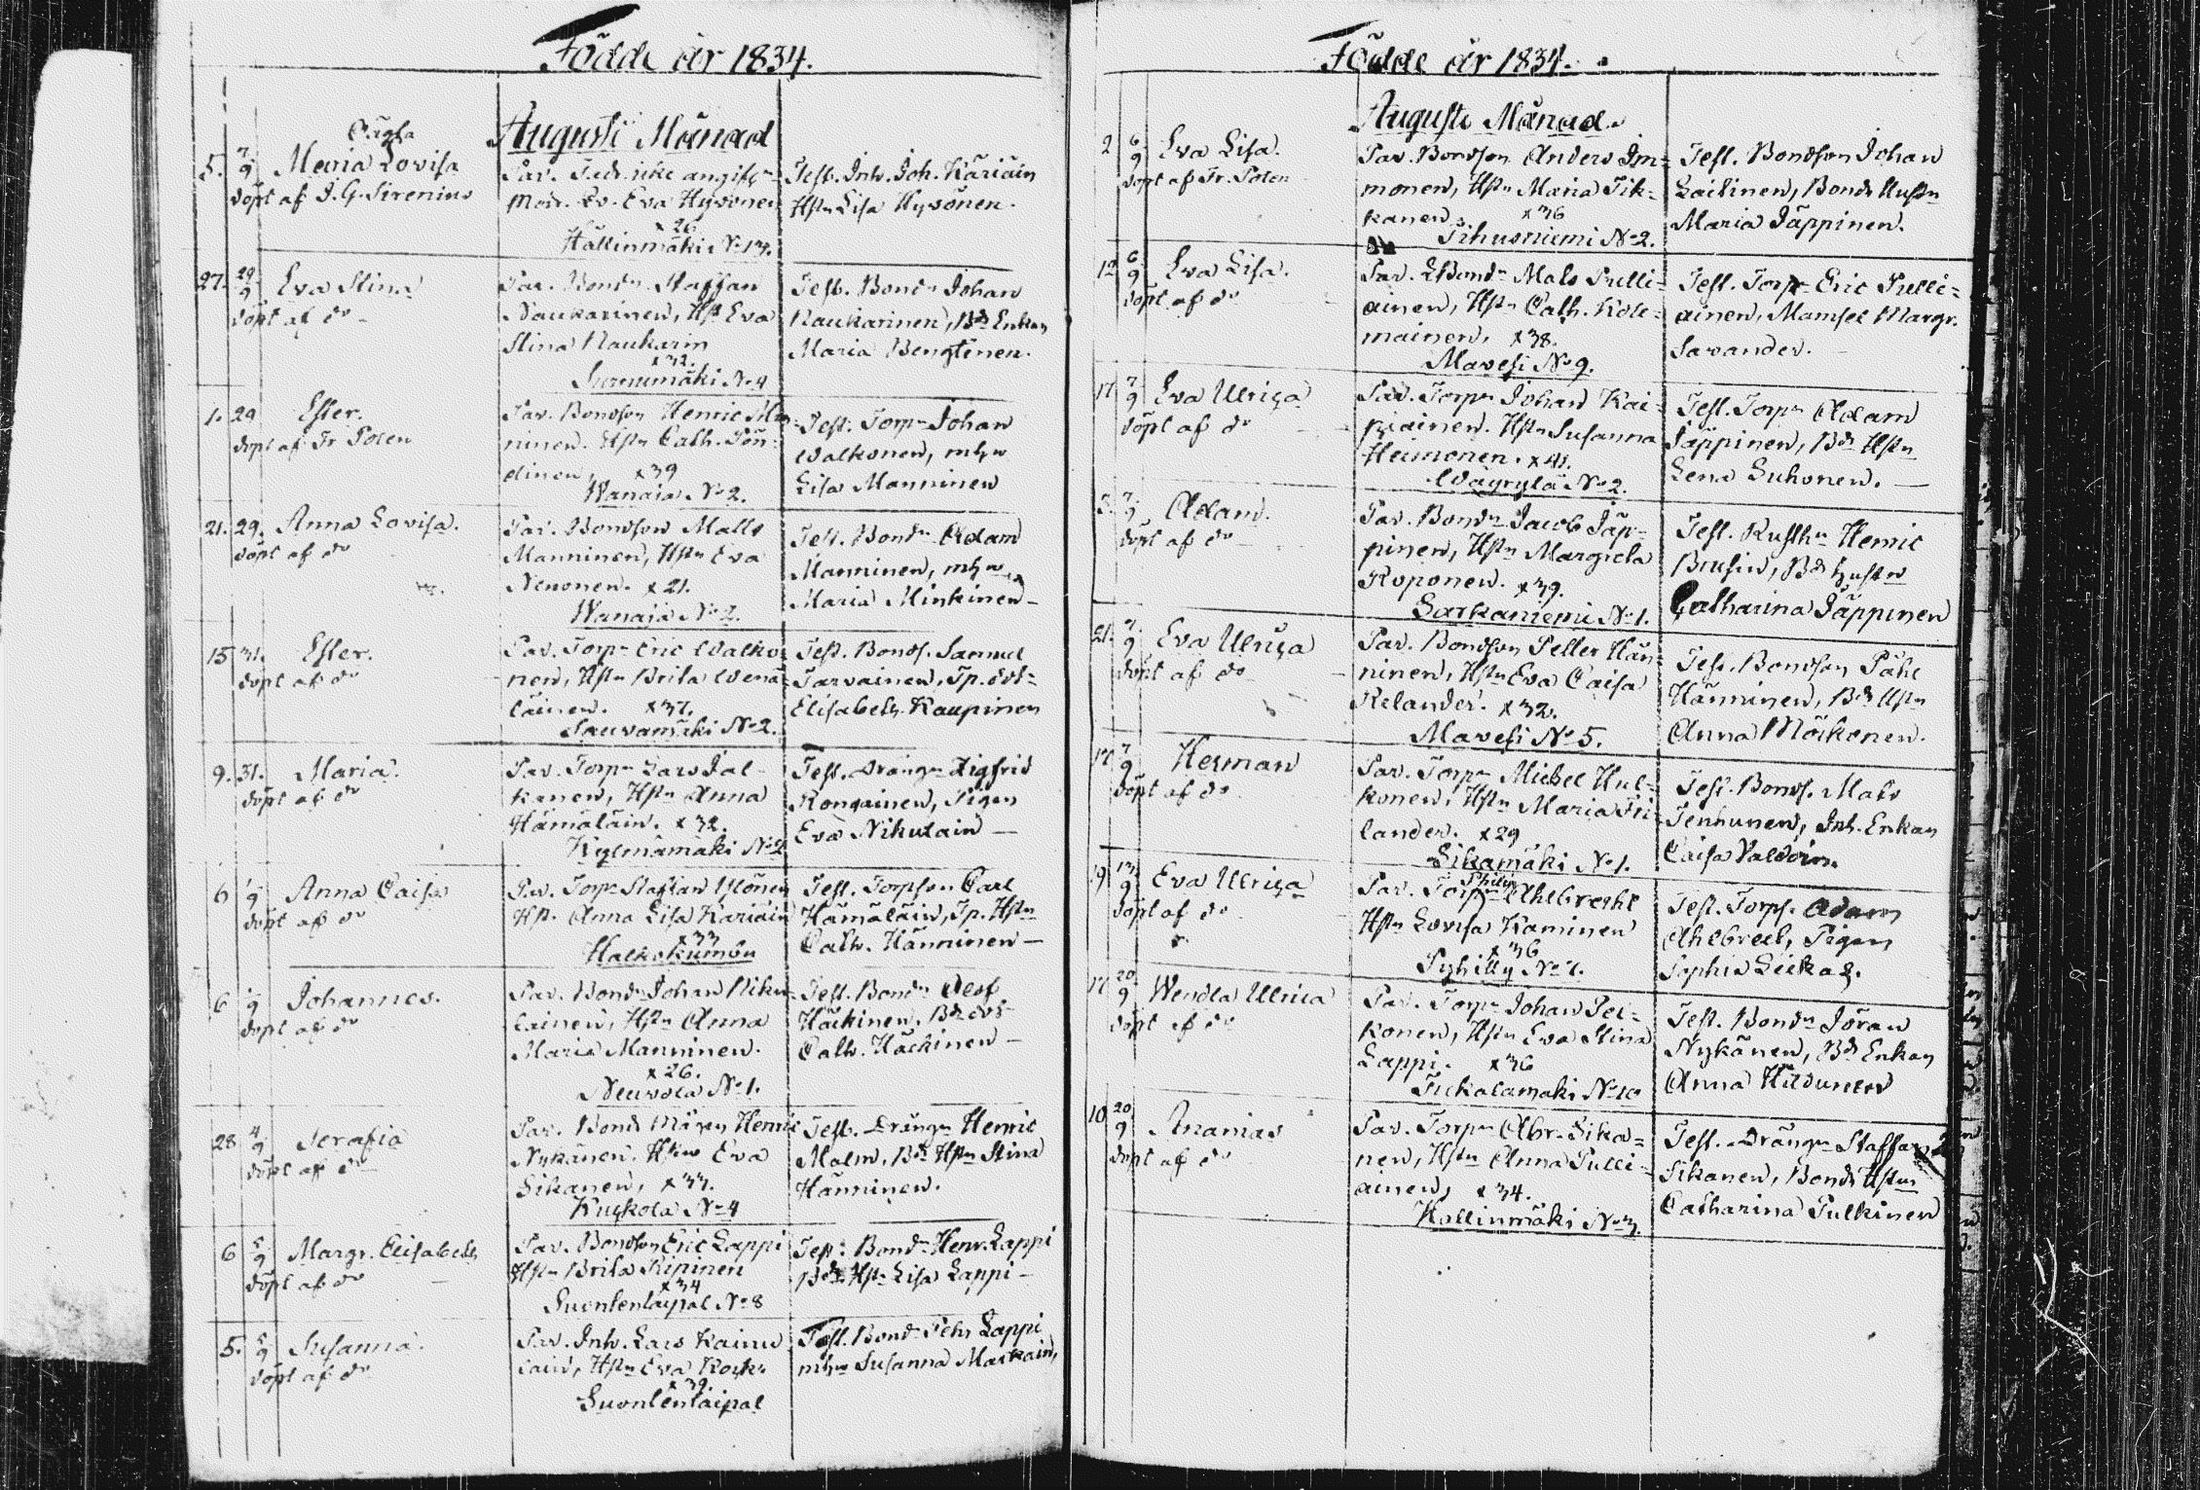 Födde år 1834.
Augusti Månad
Oägta
5. 7/9 Maria Lovisa
döpt af J. G. Sirenius
Par. Fadr. icke angifen
Modr. Ev. Eva Hyvönen
x 26
Hällinmäki No 13.
Test. Inh. Joh. Käriäin
Hstn Lisa Hyvönen.
27. 29/9 Eva Stina
döpt af do
Par. Bondn Staffan
Naukarinen, Hst Eva
Stina Naukarin
x 32.
Surnumäki No 4
Test. Bondn Johan
Naukarinen, Bd Enkan
Maria Bengtinen.
1. 29 Ester.
döpt af Fr Polen
Par. Bondson Henric Man
ninen. Hstn Cath. Pön-
dinen, x 39
Wanaja No 2.
Test. Torpn Johan
Walkonen, mhu
Lisa Manninen
21. 29. Anna Lovisa.
döpt af do
Par. Bondson Matts
Manninen, Hstn Eva
Nenonen. x 21.
Wanaja No 2.
Test. Bondn Adam
Manninen, mhu
Maria Minkinen
15 31. Ester.
döpt af do
Par. Torpn Eric Walko-
nen, Hstn Brita Wenä-
läinen. x 37.
Sauvamäki No 2.
Test. Bonds. Samuel
Tarvainen, Tp. dot-
Elisabeth Kaupinen
9. 31. Maria.
döpt af do
Par. Torpn Lars Jal-
kanen, Hstn Anna
Hämäläin. x 32.
Kylmämäki No 2
Test. Drängn Sigfrid
Rongainen, Pigan
Eva Nikulain
6 1/9 Anna Caisa
döpt af do
Par. Torpn Staffan Ylönen
Hst. Anna Lisa Käriäin
x 33
Halkokumbu
Test. Torpson Carl
Hämäläin, Tp. Hstn
Cath. Hänninen
6 1/9 Johannes.
döpt af do
Par. Bondn Johan Niku-
lainen, Hstn Anna
Maria Manninen.
x 26.
Neuvola No 1.
Test. Bondn Olof
Häckinen, Bd dot-
Cath. Häckinen
28 4/9 Serafia
döpt af do
Par. Bonds Mågen Henric
Nykänen, Hstru Eva
Sikanen, x 33.
Kuckola No 4
Test. Drängn Henric
Malm, Bd Hstn Stina
Hänninen.
6 5/9 Margr. Elisabeth
döpt af do
Par. Bondson Eric Lappi
Hstn Brita Ripinen
x 34
Suontentaipal No 8
Test. Bondn Henr. Lappi
Bds Hstn Lisa Lappi
5. 5/9 Susanna.
döpt af do
Par. Inh. Lars Kainu-
lain, Hstn Eva Kock-
x 39.
Suontentaipal
Test. Bondn Pehr Lappi
mhu Susanna Markain,
Födde år 1834.
Augusti Månad.
2 6/9 Eva Lisa.
döpt af Fr. Polen
Par. Bondson Anders Im-
monen, Hstn Maria Tik-
kanen. x 36
Pihusniemi No 2.
Test. Bondson Johan
Laitinen, Bonds Hustn
Maria Jäppinen.
12 6/9 Eva Lisa.
döpt af do
Par. LBondn Mats Pulli-
ainen, Hstn Cath. Kole-
mainen, x 38.
Mavesi No 9.
Test. Torpn Eric Pulli-
ainen, Mamsel Margr.
Savander.
17 7/9 Eva Ulrica
döpt af do
Par. Torpn Johan Kai-
piainen. Hstn Susanna
Heimonen. x 41.
Wäyrylä No 2.
Test. Torpn Adam
Jäppinen, Bds Hstn
Lena Suhonen.
3. 7/9 Adam.
döpt af do
Par. Bondn Jacob Jäp-
pinen, Hstn Margreta
Koponen. x 39.
Sarkaniemi No 1.
Test. Rusthn Henric
Brusin, Bds hustn
Catharina Jäppinen
21. 7/9 Eva Ulrica
döpt af do
Par. Bondson Petter Hän-
ninen, Hstn Eva Caisa
Relander. x 32.
Mavesi No 5.
Test. Bondson Påhl
Hänninen, Bds Hstn
Anna Möikonen.
17 7/9 Herman
döpt af do
Par. Torpn Mickel Hul-
konen, Hstn Maria Fri-
lander. x 29
Sikamäki No 1.
Test. Bonds. Mats
Tenhunen, Inh. Enkan
Caisa
19 13/9 Eva Ulrica
döpt af do
Philip
Par. Torpn Ahlbrecht
Hstn Lovisa Kaminen
x 36
Pyhitty No 7.
Test. Torps. Adam
Ahlbrect, Pigan
Sophia
17 20/9 Wendla Ulrica
döpt af do
Par. Torpn Johan Pel-
konen, Hstn Eva Stina
Lappi. x 36
Tukalamäki No 10
Test. Bondn Jöran
Nykänen, Bds Enkan
Anna Hiltunen
10 20/9 Ananias
döpt af do
Par. Torpn Abr. Sika-
nen, Hstn Anna Pulli-
ainen, x 34.
Hällinmäki No 3.
Test. Drängn Staffan
Sikanen, Bonds Hstn
Catharina Pulkinen